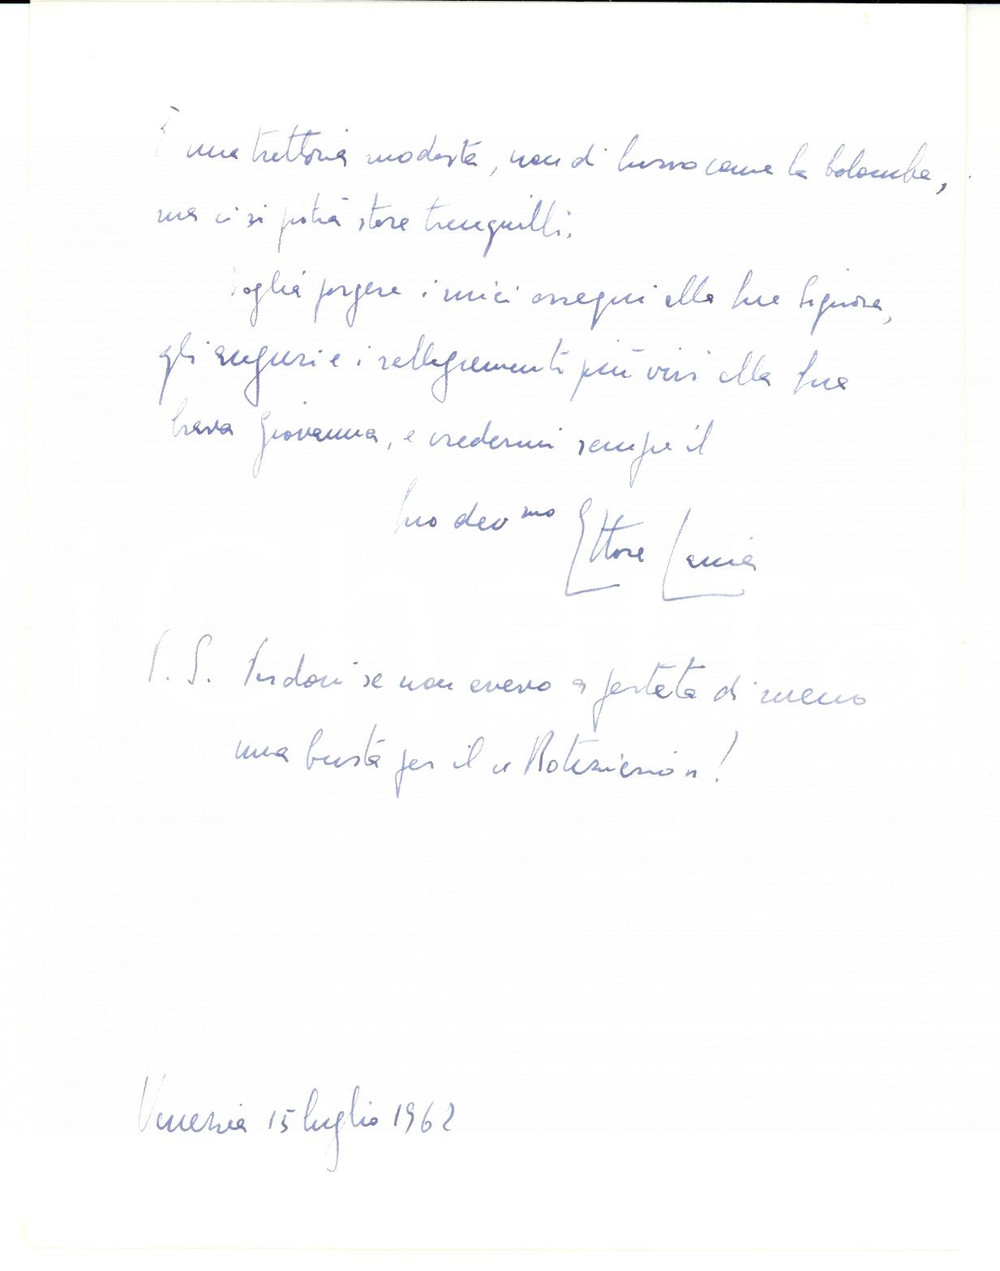 È una trattoria modesta, non di lusso come la Colomba,
ma ci si potrà stare tranquilli.
Voglia porgere i miei ossequi alla Sua Signora,
gli auguri e i rallegramenti più vivi alla Sua
brava Giovanna, e credermi sempre il
Suo dev mo Ettore
P. S. Perdoni se non avevo a portata di mano
una busta per il « Notiziario »!
Venezia 15 luglio 1962